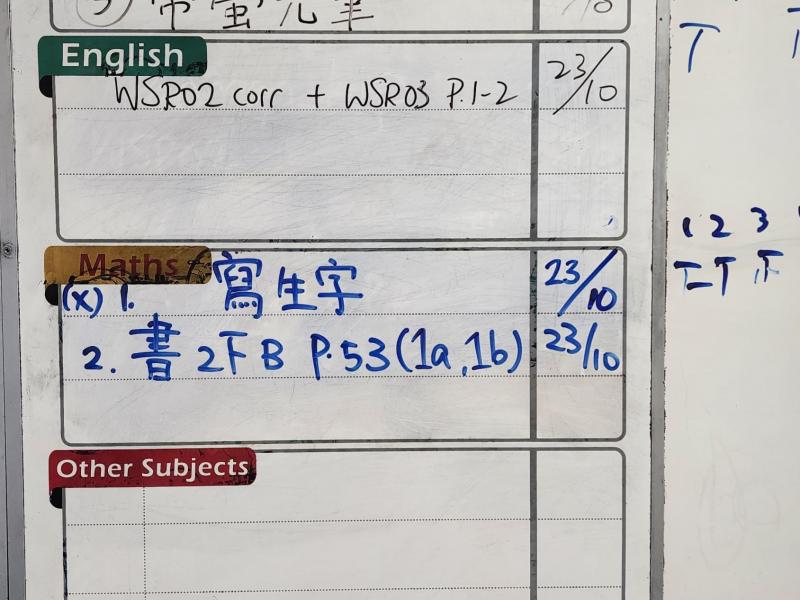 English
WSR02 corr + WSR03 P.1-2 23/10
Maths
(x) 1. 寫生字 23/10
2. 書 2下B P.53 (1a, 1b) 23/10
Other Subjects
1 2 3